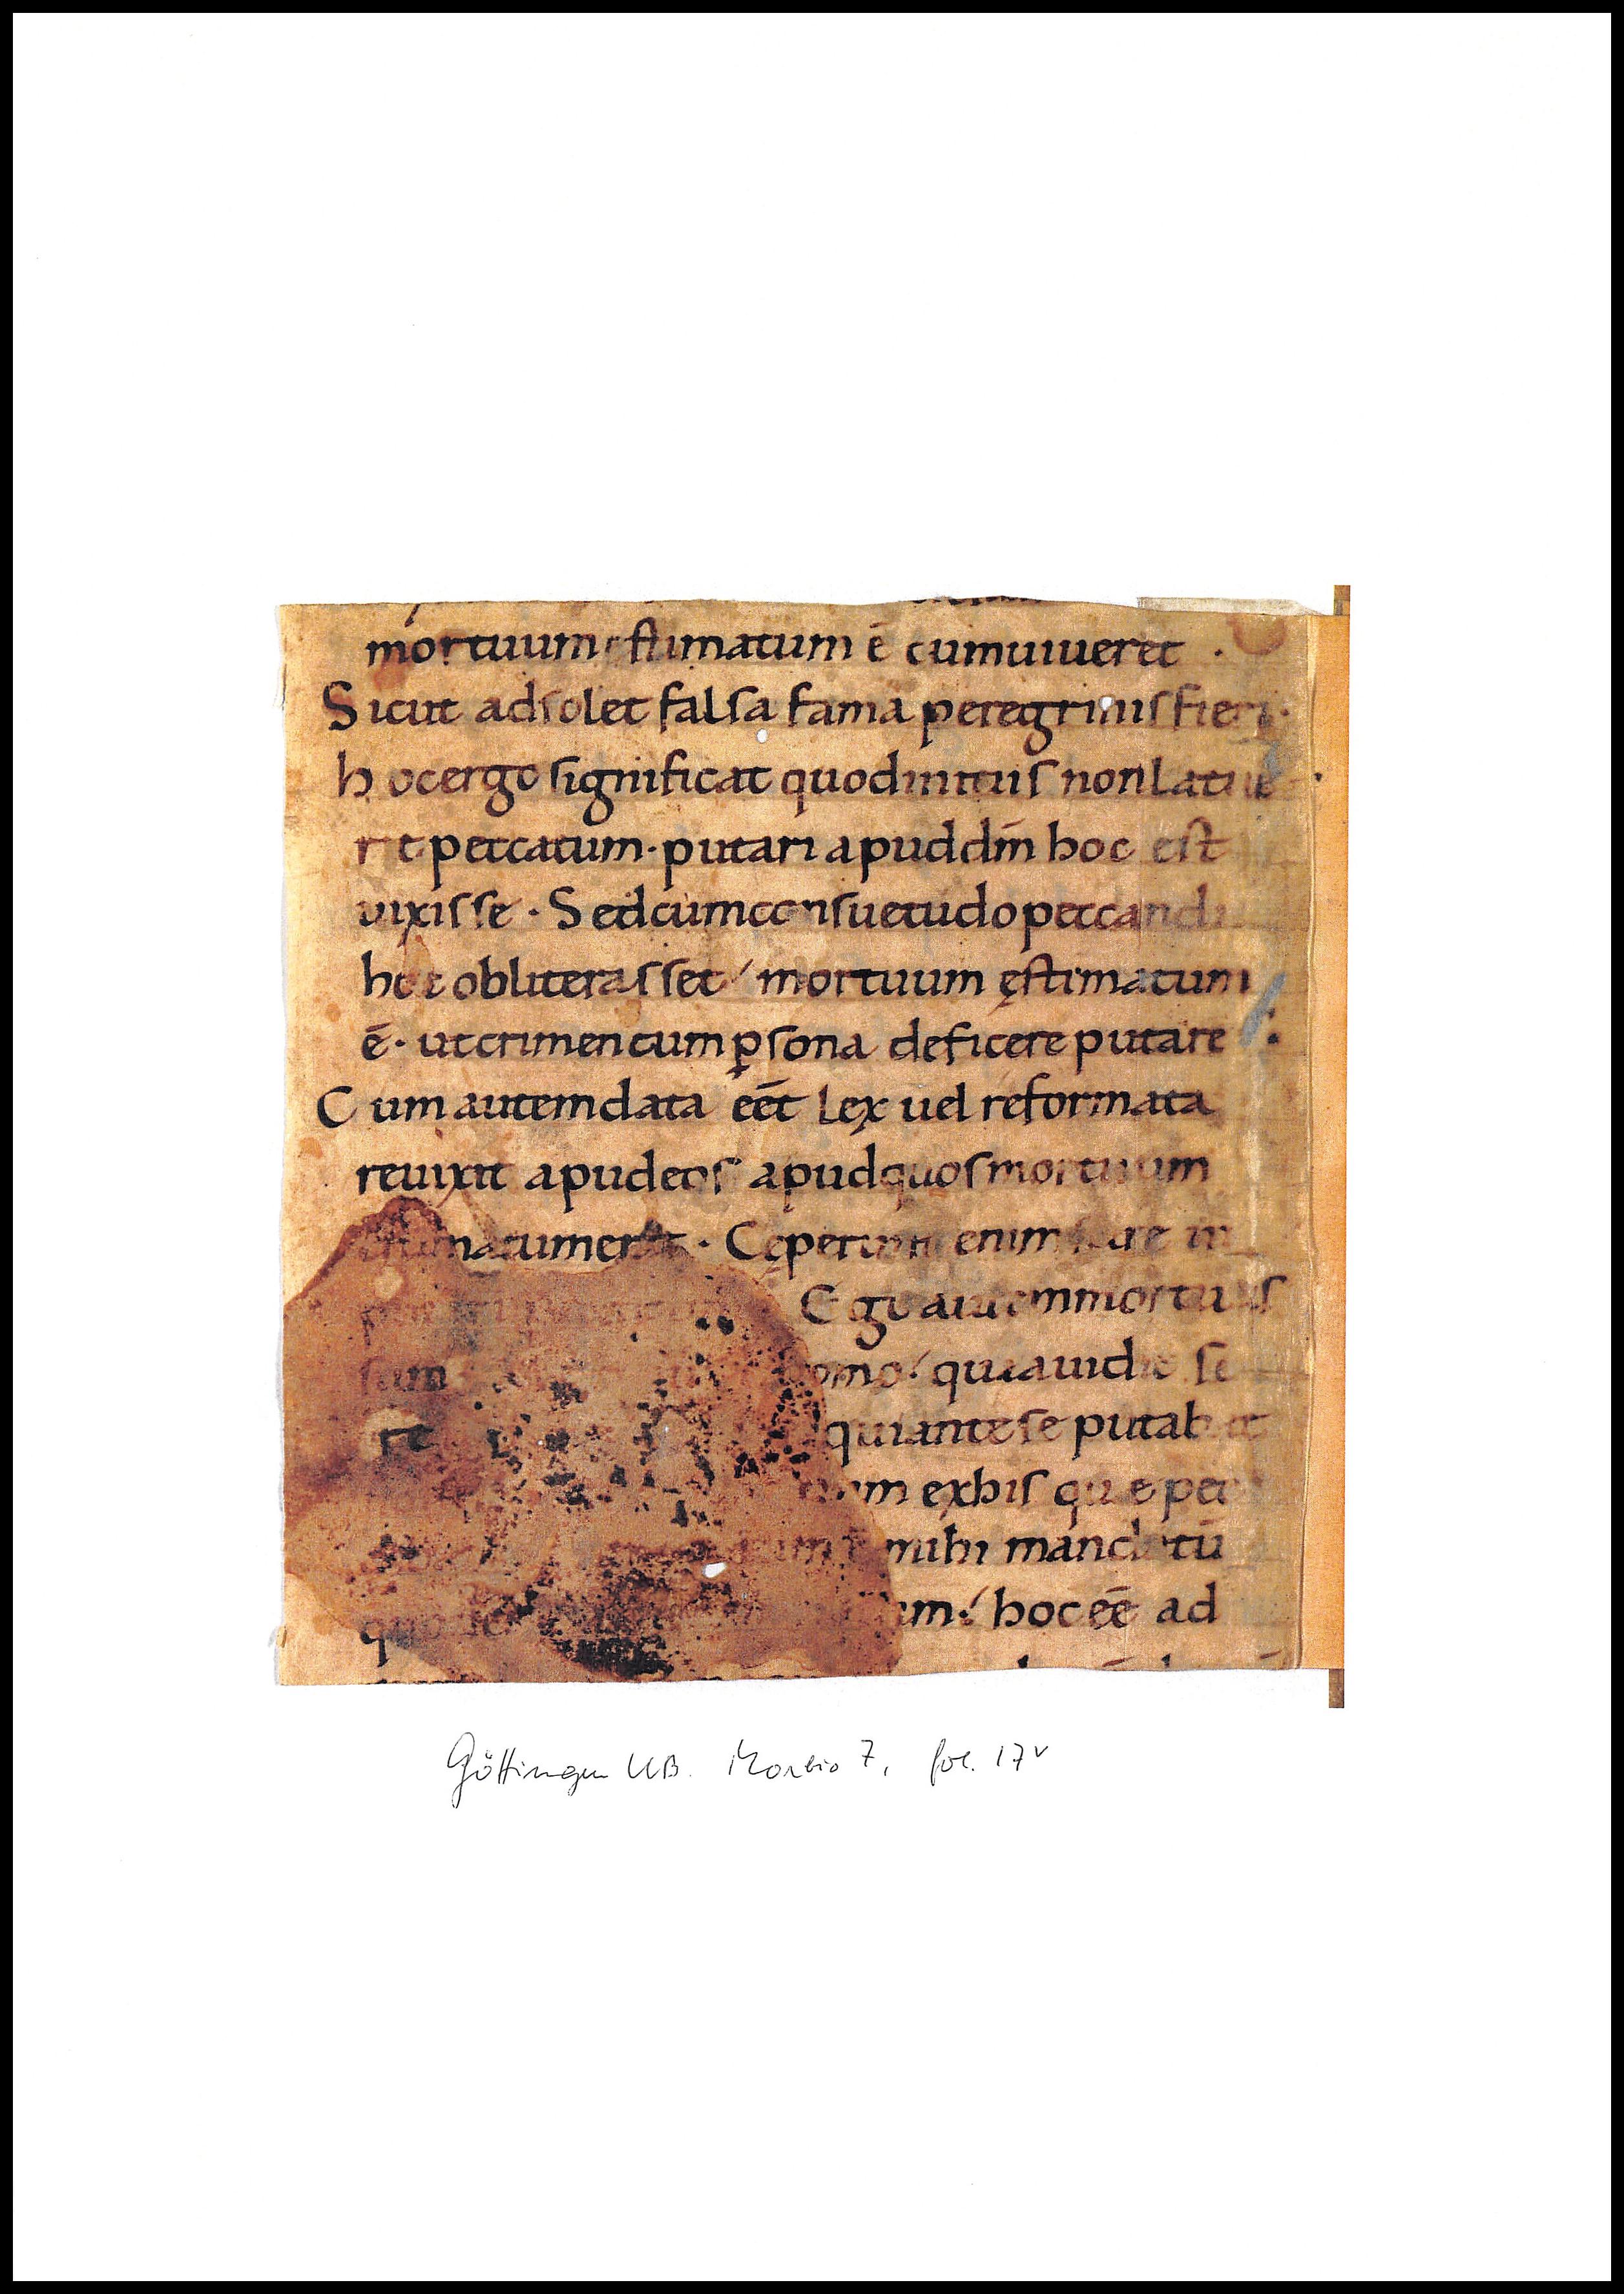 mortuum estimatum ē cum uiueret .
Sicut adsolet falsa fama peregrinis fieri.
hoc ergo significat quod initiis non latue
ret peccatum· putari apud dm̄ hoc est
vixisse · Sed cum consuetudo peccandi
hoc obliterasset / mortuum ęstimatum
ē · ut crimen cum p̱sona deficere putare
Cum autem data eēt lex uel reformata
reuixit apud eos apud quos mortuum
estimatum erat · Cęperunt enim scire in
Ego autem mortuus
sum omo / quia uidit se
re qui ante se putabat
um ex his que pec
mihi mandatū
am / hoc eē ad
Göttingen UB. Morbio 7, fol. 17v